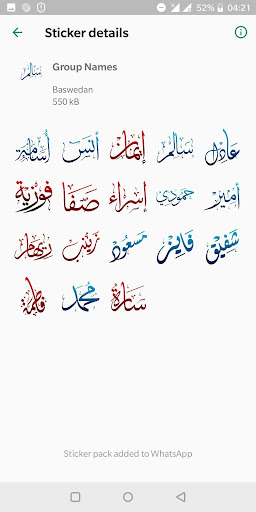 52% 04:21
Sticker details
Group Names
Baswedan
550 kB
عادل سالم إيمان أنس أسامة
أمير حمودي إسراء صفا فوزية
شفيق فايز مسعود زينب ريهام
سارة محمد فاطمة
Sticker pack added to WhatsApp